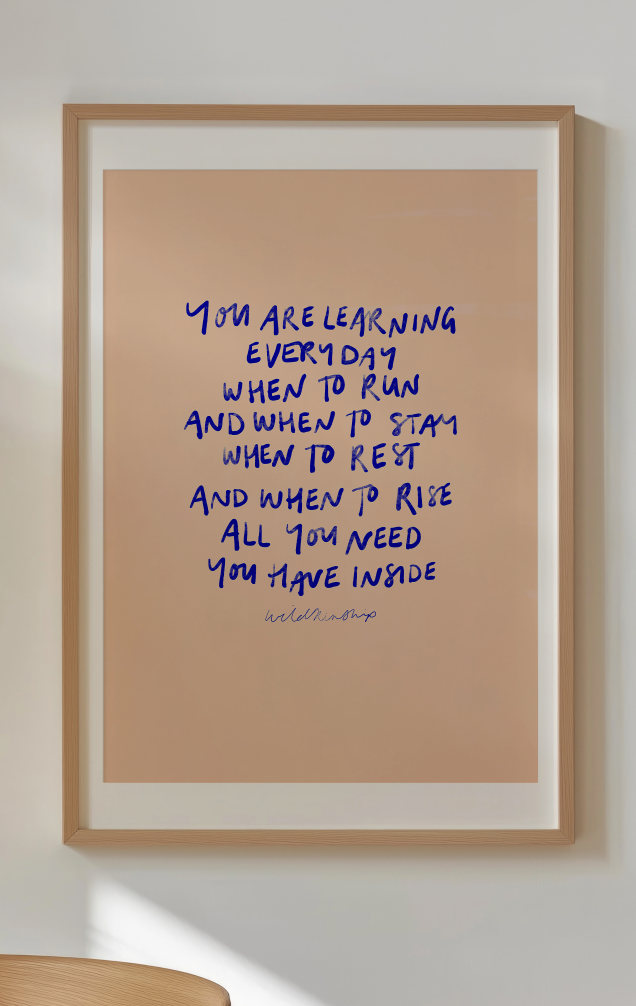 YOU ARE LEARNING
EVERYDAY
WHEN TO RUN
AND WHEN TO STAY
WHEN TO REST
AND WHEN TO RISE
ALL YOU NEED
YOU HAVE INSIDE
wildkinship